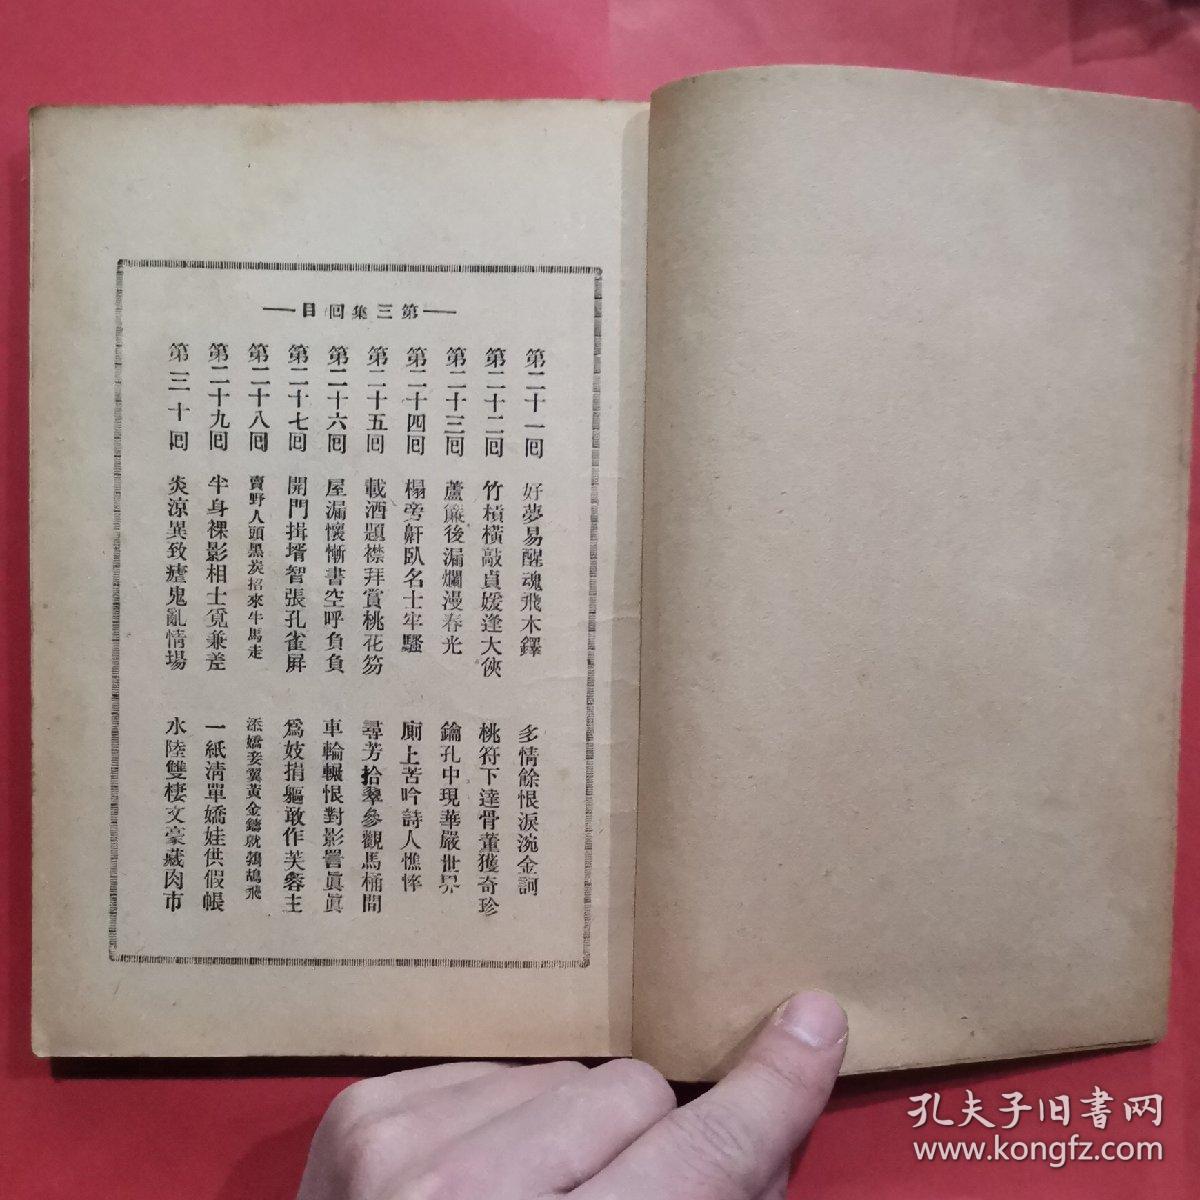 第三集回目
第二十一回 好夢易醒魂飛木鐸 多情餘恨淚涴金訶
第二十二回 竹槓橫敲貞媛逢大俠 桃符下達骨董獲奇珍
第二十三回 蘆簾後漏爛漫春光 鑰孔中現華嚴世界
第二十四回 榻旁鼾臥名士牢騷 廁上苦吟詩人憔悴
第二十五回 載酒題襟拜賞桃花笏 尋芳拾翠參觀馬桶間
第二十六回 屋漏懷慚書空呼負負 車輪輾恨對影詈眞眞
第二十七回 開門揖壻智張孔雀屛 爲妓捐軀敢作芙蓉主
第二十八回 賣野人頭黑炭招來牛馬走 添嬌妾翼黃金鑄就鶼鶘飛
第二十九回 半身裸影相士覓兼差 一紙淸單嬌娃供假帳
第三十回 炎涼異致瘧鬼亂情場 水陸雙棲文豪藏肉市
孔夫子旧書网
www.kongfz.com